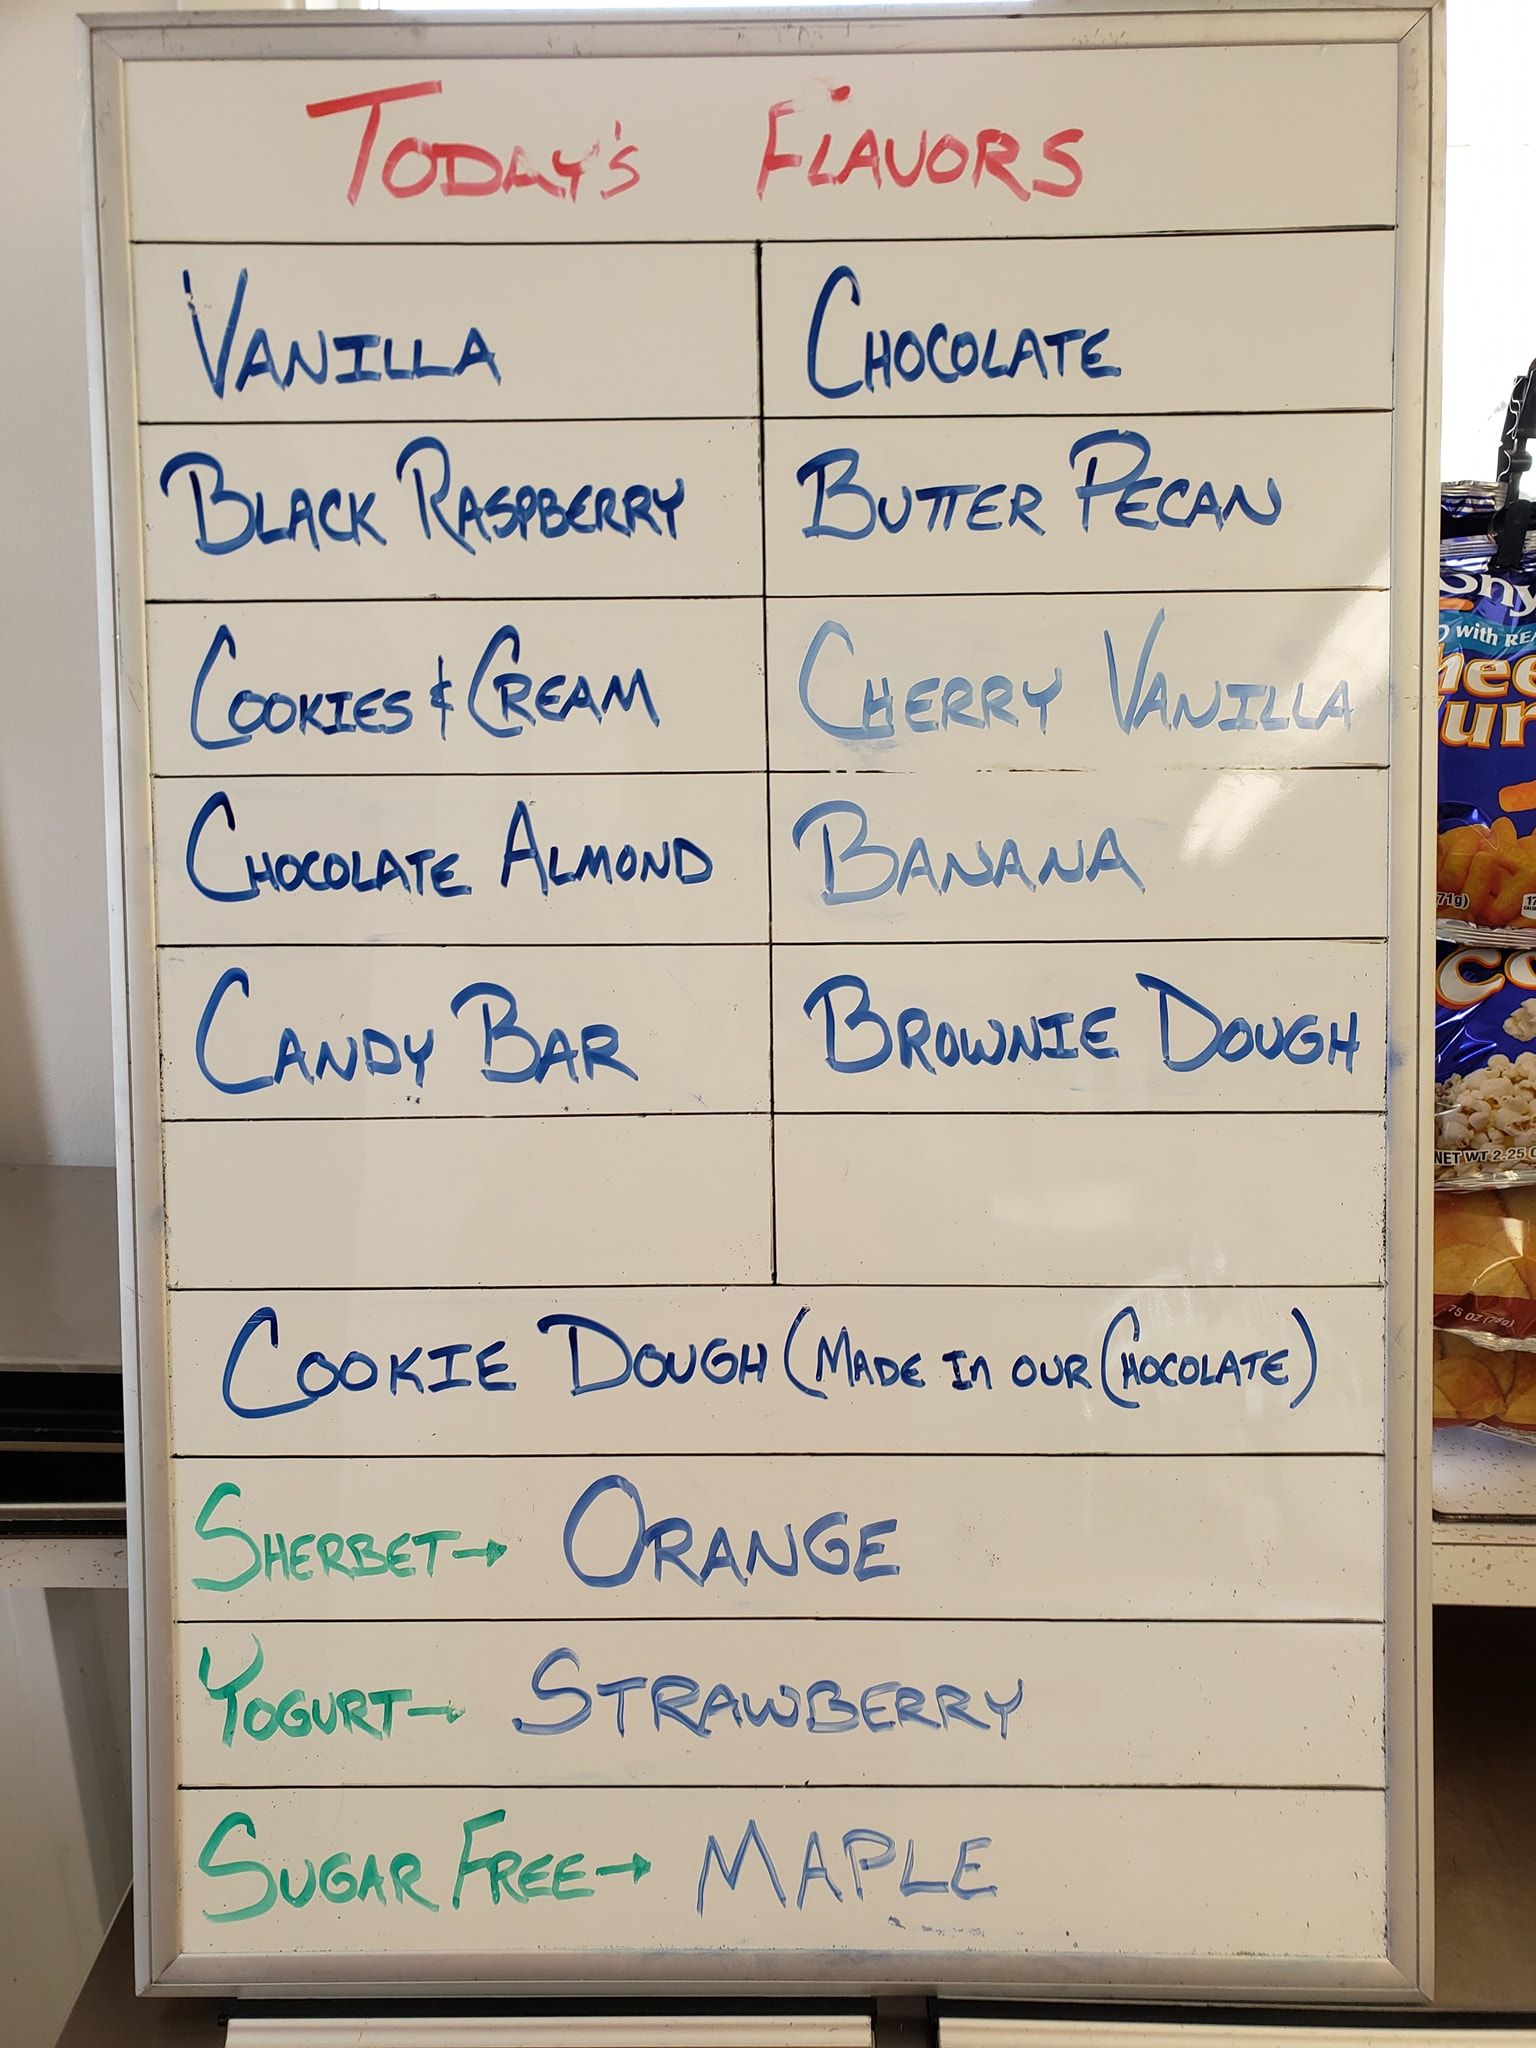 TODAY'S FLAVORS
VANILLA
CHOCOLATE
BLACK RASPBERRY
BUTTER PECAN
COOKIES & CREAM
CHERRY VANILLA
CHOCOLATE ALMOND
BANANA
CANDY BAR
BROWNIE DOUGH
COOKIE DOUGH (MADE IN OUR CHOCOLATE)
SHERBET→ ORANGE
YOGURT→ STRAWBERRY
SUGAR FREE→ MAPLE
with
71g)
NET WT 2.25